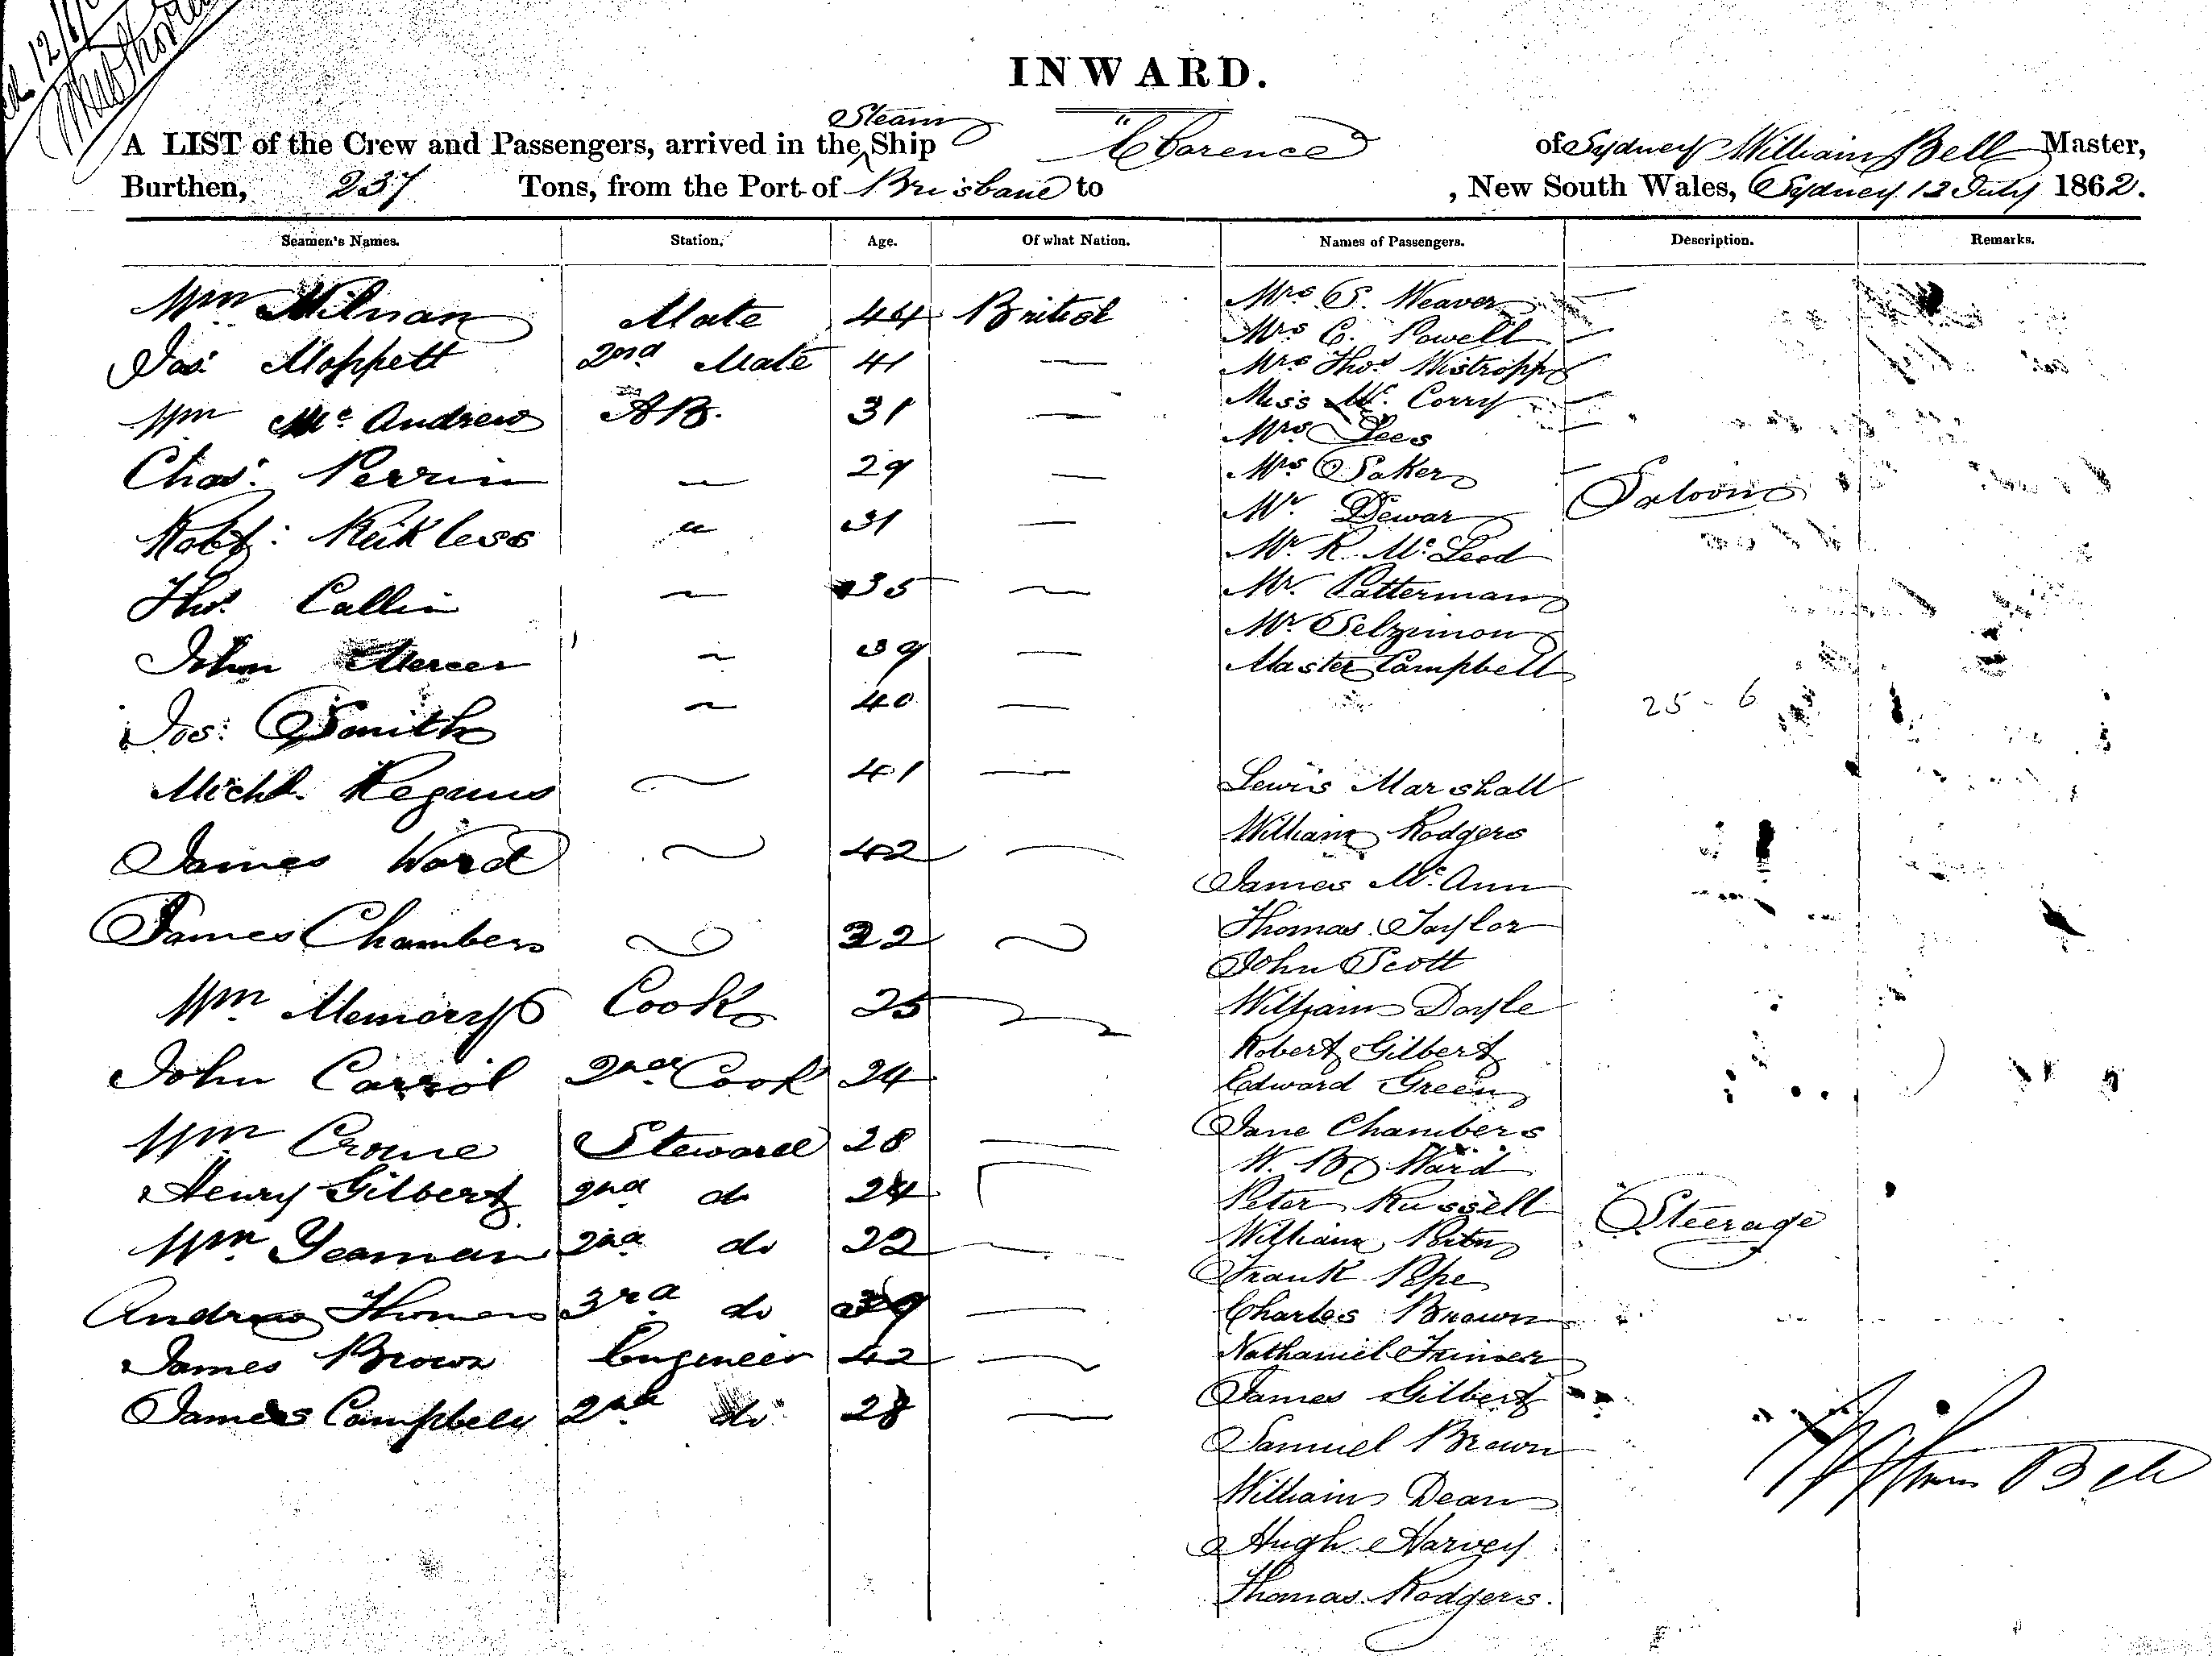 INWARD.
A LIST of the Crew and Passengers, arrived in the Steam Ship "Clarence of Sydney William Bell Master,
Burthen, 237 Tons, from the Port of Brisbane to , New South Wales, Sydney 12 July 1862.
Seamen's Names. Station. Age. Of what Nation. Names of Passengers. Description. Remarks.
Wm Milnan Mate 44 British
Jas: Moppett 2nd Mate 41 —
Wm Mc Andrew AB. 31 —
Chas: Perrin — 29 —
Robt: Reikless " 31 —
Thos. Callin — 35 —
John Mercer — 39 —
Jos: Smith — 40 —
Michl. Regans — 41 —
James Ward — 42 —
James Chambers — 32 —
Wm Memory Cook 25
John Carrol 2nd Cook 24
Wm Crome Steward 28 —
Henry Gilbert 2nd do 24
Wm Yeaman 2nd do 22 —
Andrew Thomas 3rd do 39 —
James Brown Engineer 42 —
James Campbell 2nd do 28 —
Mrs E. Weaver
Mrs C. Powell
Mrs Thos.
Miss Mc. Corry
Mrs Lees
Mrs Saker
Mr. Dewar Saloon
Mr. R. Mc. Leod
Mr. Patterman
Mr. Selzimon
Master Campbell
25 - 6
Lewis Marshall
William Rodgers
James Mc. Ann
Thomas Taylor
John Scott
William Doyle
Robert Gilbert
Edward Green
Jane Chambers
W. B. Ward
Peter Russell Steerage
William
Frank Pope
Charles Brown
Nathaniel
James Gilbert
Samuel Brown
William Dean
Hugh Harvey
Thomas Rodgers.
William Bell